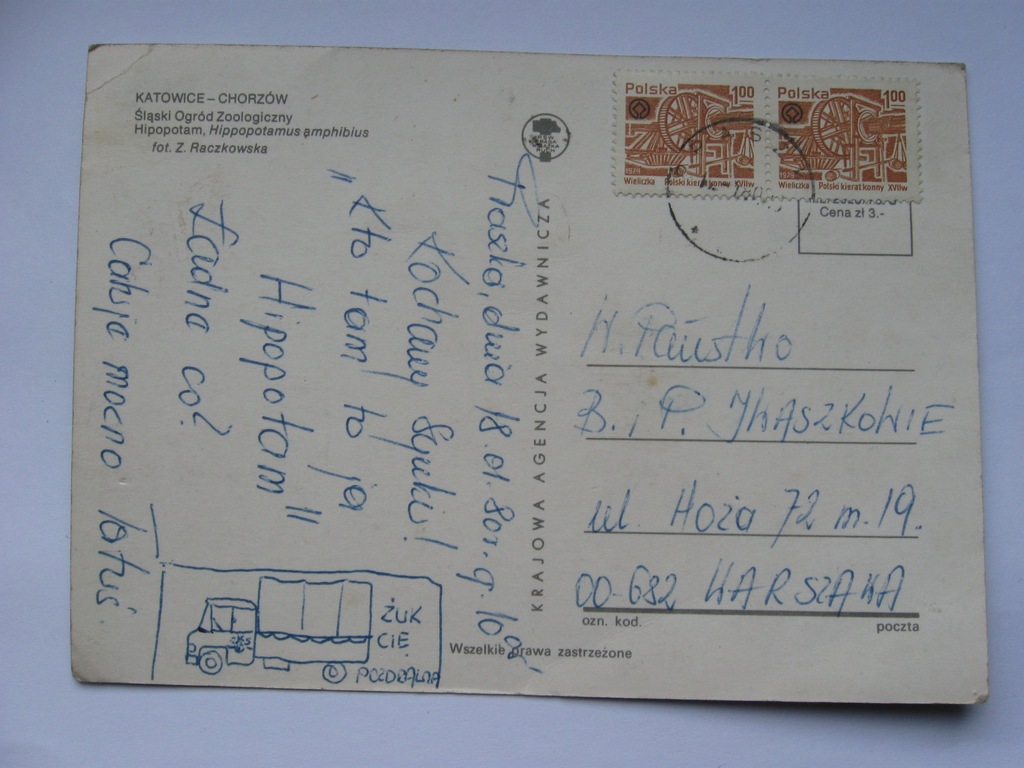 KATOWICE – CHORZÓW
Śląski Ogród Zoologiczny
Hipopotam, Hippopotamus amphibius
fot. Z. Raczkowska
dnia 18.01.80r. g. 10
Kochany
"Kto tam? to ja
Hipopotam"
Ładna co?
Całuję mocno Tatuś.
ŻUK
CIĘ
© POZDBALNA
KRAJOWA AGENCJA WYDAWNICZA
Wszelkie prawa zastrzeżone
Polska 1.00
1979
Wieliczka Polski kierat konny XVII w
Polska 1.00
1979
Wieliczka Polski kierat konny XVII w
Cena zł 3.-
B. i P. IWASZKOWIE
ul. Hoża 72 m. 19.
00-682 WARSZAWA
ozn. kod. poczta